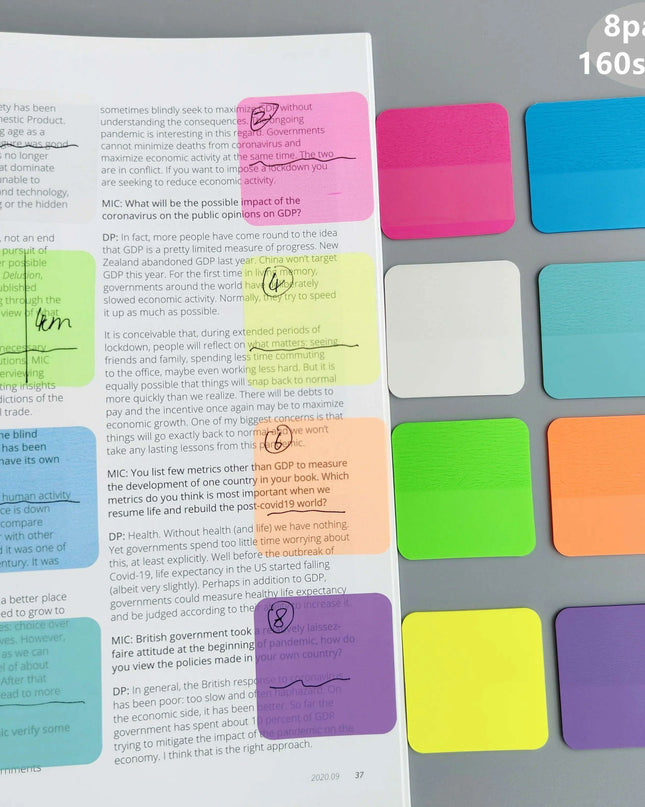 8pa
160s
ety has been
nestic Product,
g age as a
gure was good
s no longer
at dominate
nable to
nd technology,
or the hidden
, not an end
pursuit of
er possible
Delusion,
ublished
g through the
view of what
4cm
necessary
utions, MIC
erviewing
ting insights
dictions of the
l trade.
he blind
has been
have its own
human activity
ce is down
compare
r with other
d it was one of
entury. It was
a better place
ed to grow to
es: choice over
ves. However,
as we can
el of about
After that
ead to more
ic verify some
rnments
sometimes blindly seek to maximize GDP without
understanding the consequences. The ongoing
pandemic is interesting in this regard. Governments
cannot minimize deaths from coronavirus and
maximize economic activity at the same time. The two
are in conflict. If you want to impose a lockdown you
are seeking to reduce economic activity.
2
MIC: What will be the possible impact of the
coronavirus on the public opinions on GDP?
DP: In fact, more people have come round to the idea
that GDP is a pretty limited measure of progress. New
Zealand abandoned GDP last year. China won't target
GDP this year. For the first time in living memory,
governments around the world have deliberately
slowed economic activity. Normally, they try to speed
it up as much as possible.
4
It is conceivable that, during extended periods of
lockdown, people will reflect on what matters: seeing
friends and family, spending less time commuting
to the office, maybe even working less hard. But it is
equally possible that things will snap back to normal
more quickly than we realize. There will be debts to
pay and the incentive once again may be to maximize
economic growth. One of my biggest concerns is that
things will go exactly back to normal and we won't
take any lasting lessons from this pandemic.
6
MIC: You list few metrics other than GDP to measure
the development of one country in your book. Which
metrics do you think is most important when we
resume life and rebuild the post-covid19 world?
DP: Health. Without health (and life) we have nothing.
Yet governments spend too little time worrying about
this, at least explicitly. Well before the outbreak of
Covid-19, life expectancy in the US started falling
(albeit very slightly). Perhaps in addition to GDP,
governments could measure healthy life expectancy
and be judged according to their ability to increase it.
8
MIC: British government took a relatively laissez-
faire attitude at the beginning of pandemic, how do
you view the policies made in your own country?
DP: In general, the British response to coronavirus
has been poor: too slow and often haphazard. On
the economic side, it has been better. So far the
government has spent about 10 percent of GDP
trying to mitigate the impact of the pandemic on the
economy. I think that is the right approach.
2020.09 37